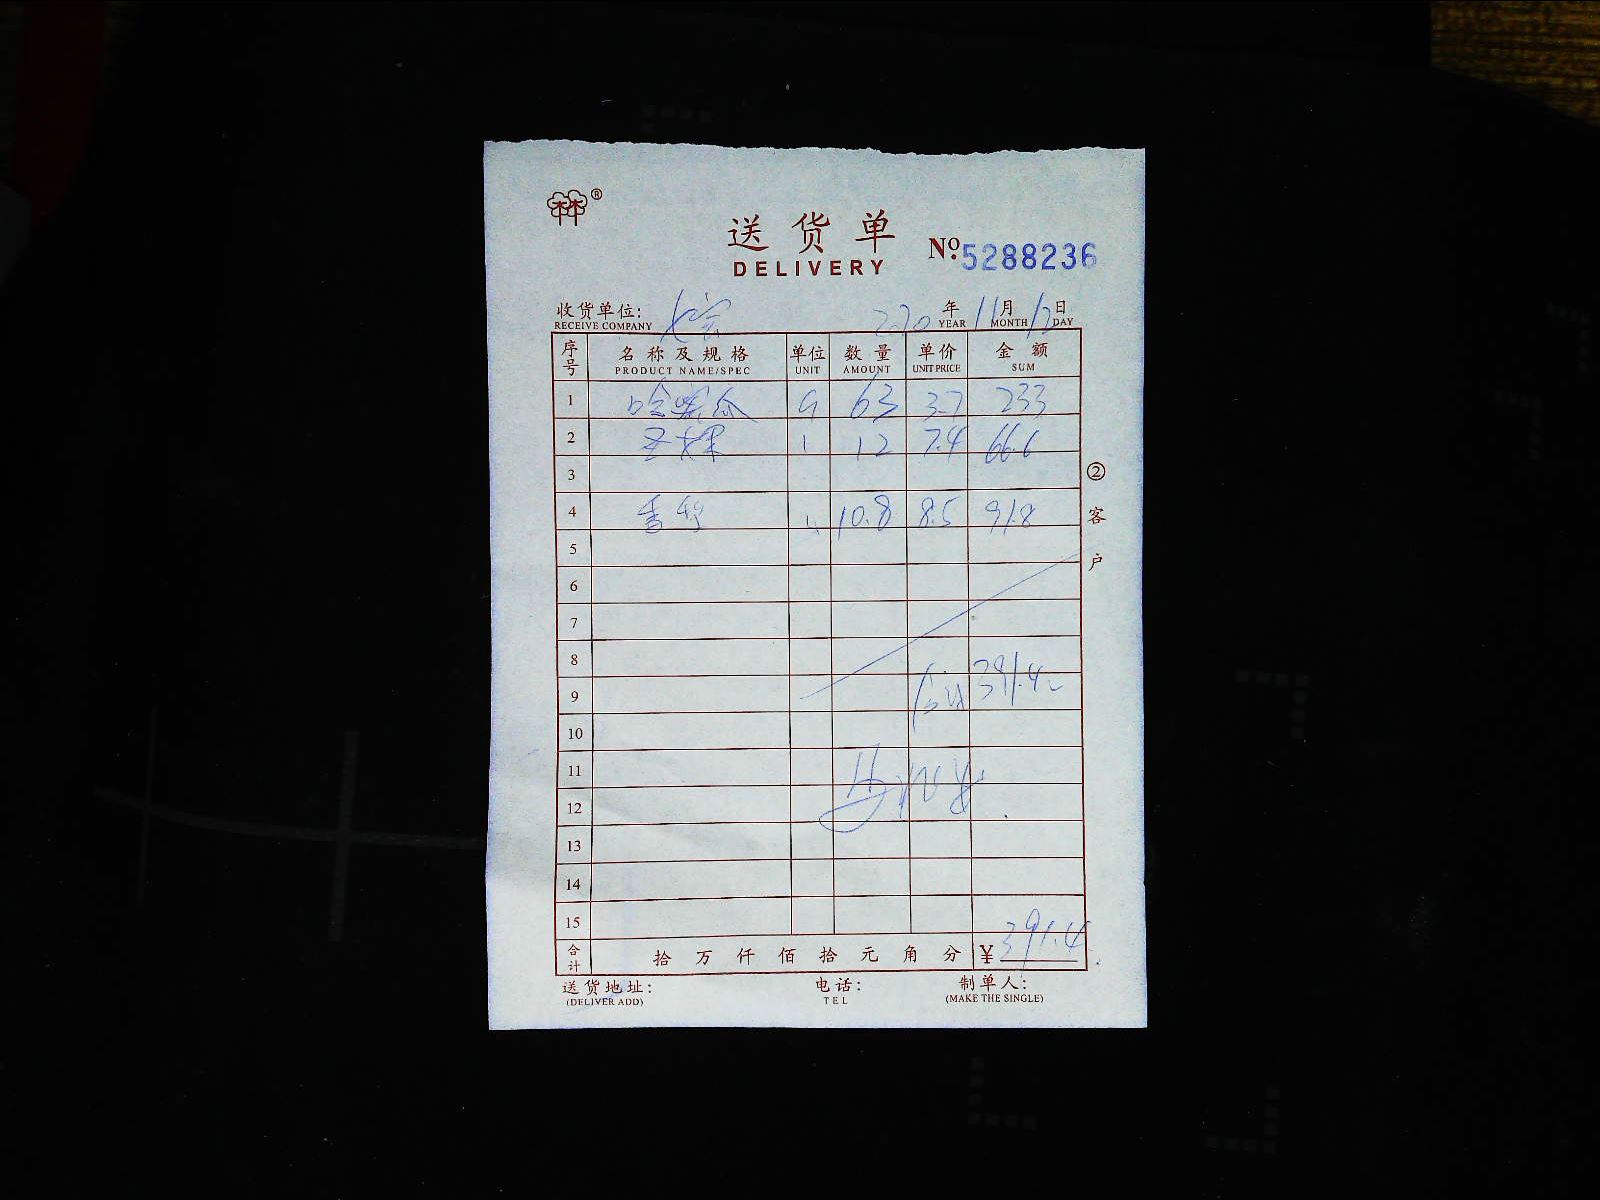 ®
送货单
DELIVERY
№ 5288236
收货单位: 2020 年 11 月 12 日
RECEIVE COMPANY YEAR MONTH DAY
序号 名称及规格 单位 数量 单价 金额
PRODUCT NAME/SPEC UNIT AMOUNT UNIT PRICE SUM
1 哈密瓜 63 3.7 233
2 12 7.4 66.6
3
4 香梨 10.8 8.5 91.8
5
6
7
8
9 合计 391.4
10
11
12
13
14
15
合计 拾 万 仟 佰 拾 元 角 分 ¥ 391.4
② 客户
送货地址: 电话: 制单人:
(DELIVER ADD) TEL (MAKE THE SINGLE)